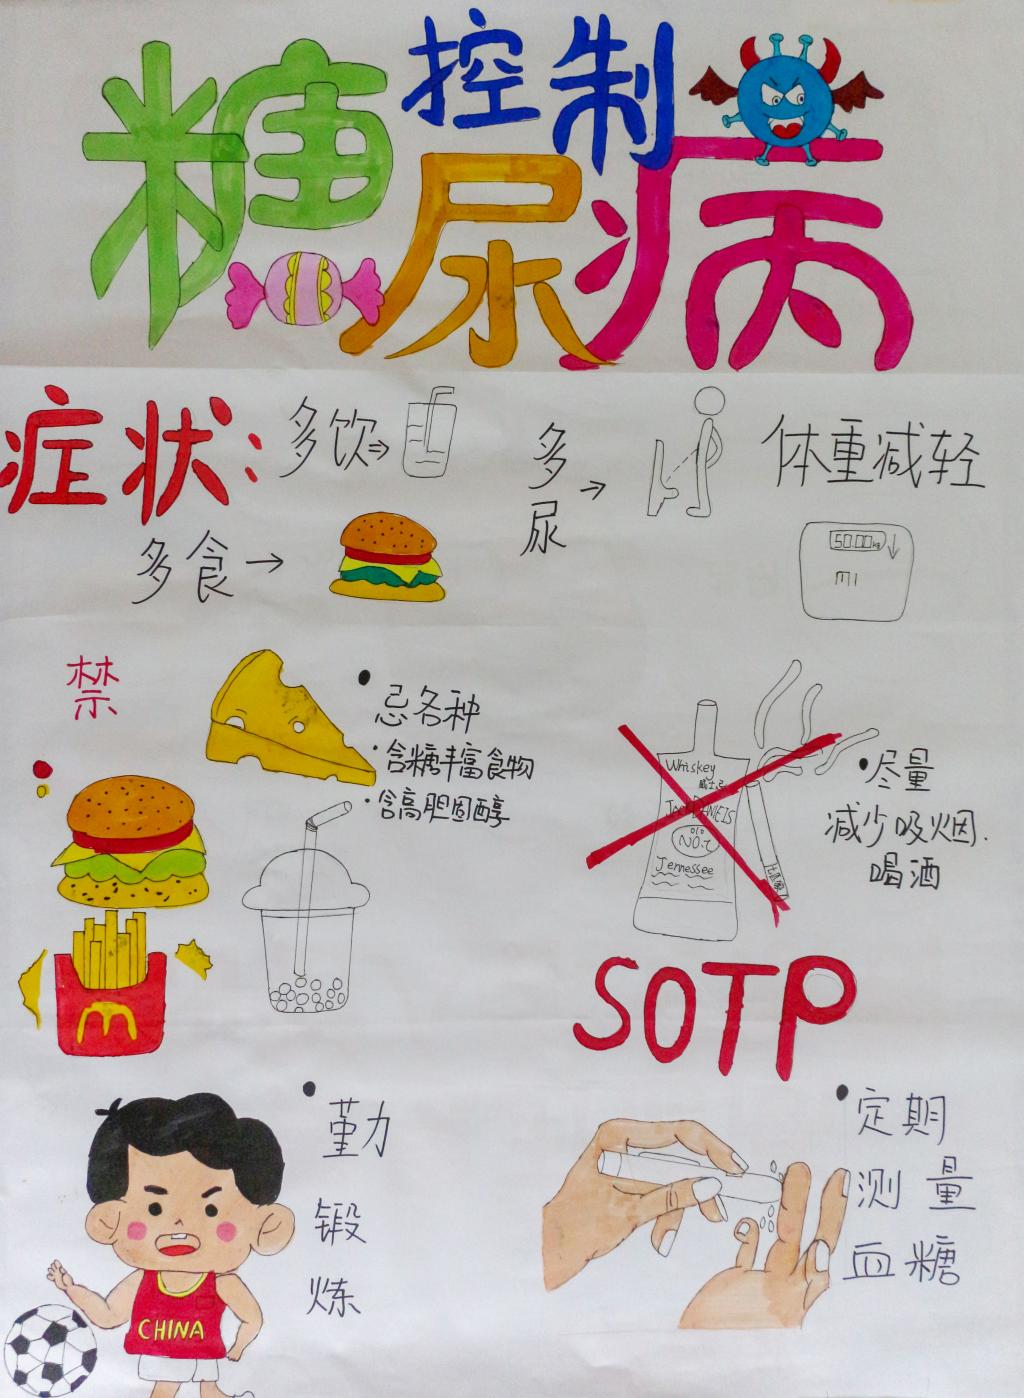 控制
糖尿病
症状:
多饮⇒
多尿→
体重减轻
多食→
50.00kg↓
mi
禁
•忌各种
·含糖丰富食物
·含高胆固醇
Whiskey
威士忌
JACK DANIELS
NO.7
Jennessee
•尽量
减少吸烟.
喝酒
SOTP
•勤
锻
炼
CHINA
•定期
测量
血糖